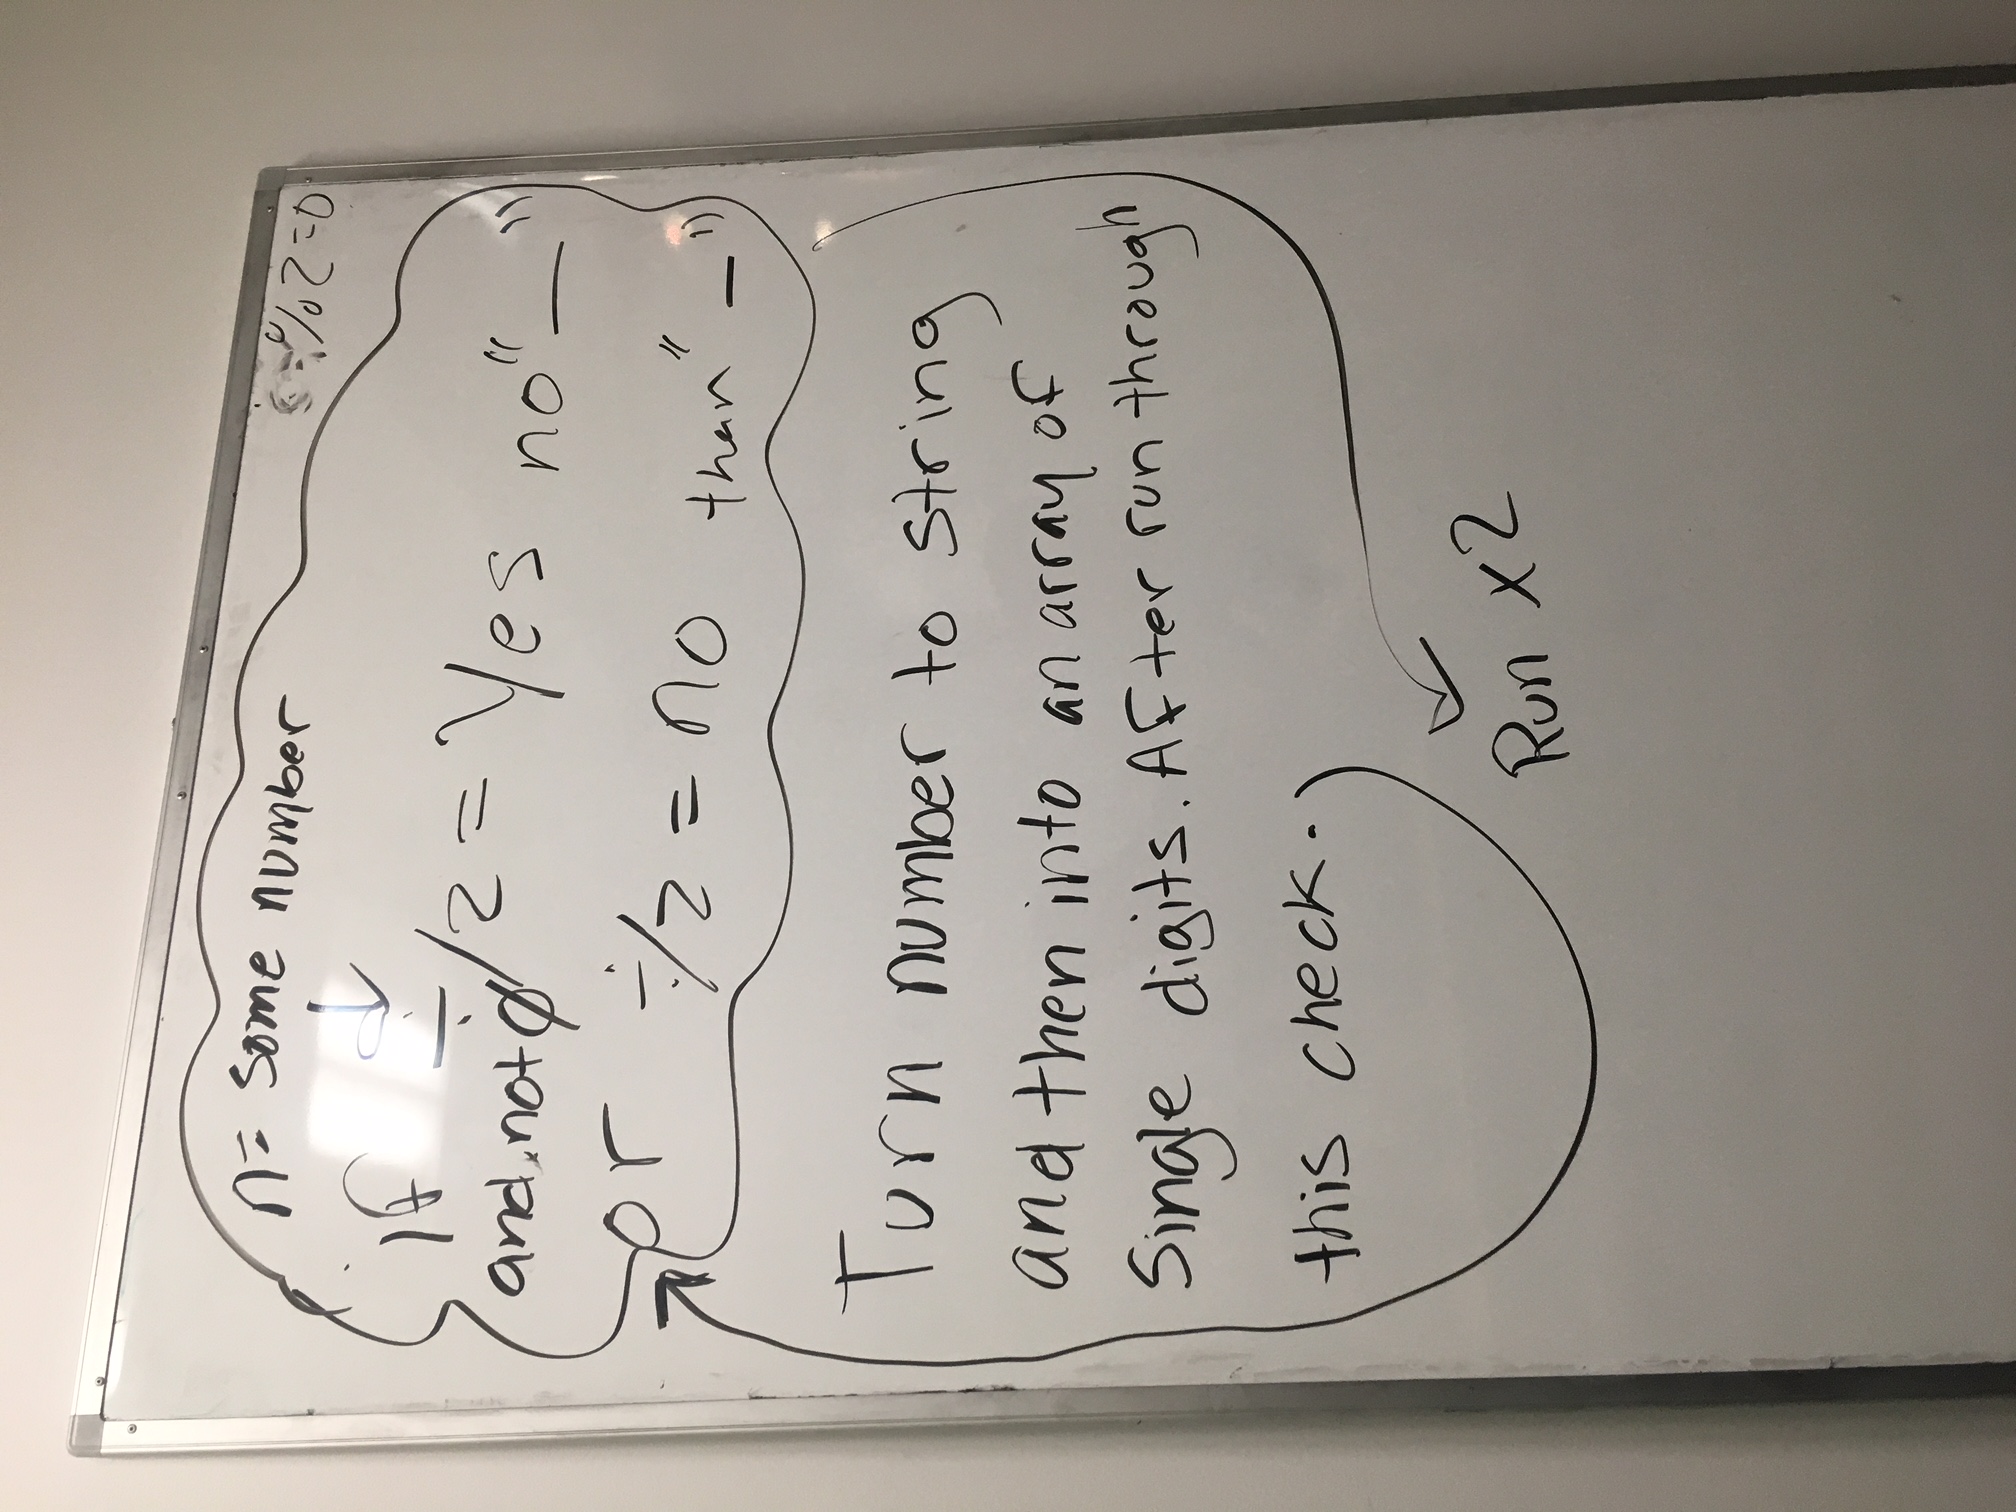 n= some number
% 2=0
if ÷/2 = Yes no "_"
and not ∅
or ÷/2 = no than "_"
Turn number to string
and then into an array of
Single digits. After run through
this check.
Run x2